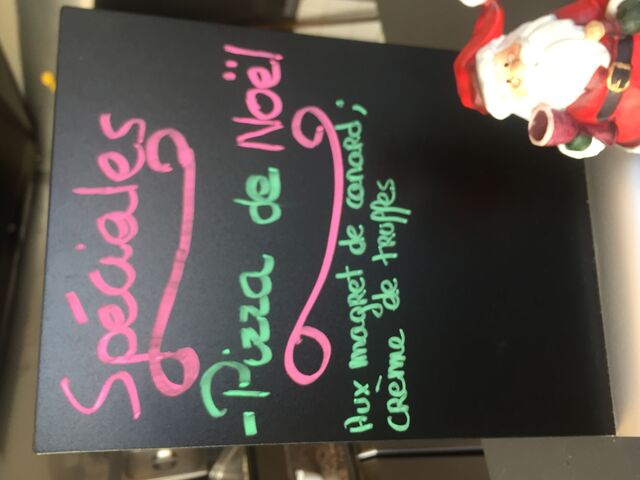 Spéciales
- Pizza de Noël
Aux magret de canard,
crème de truffes